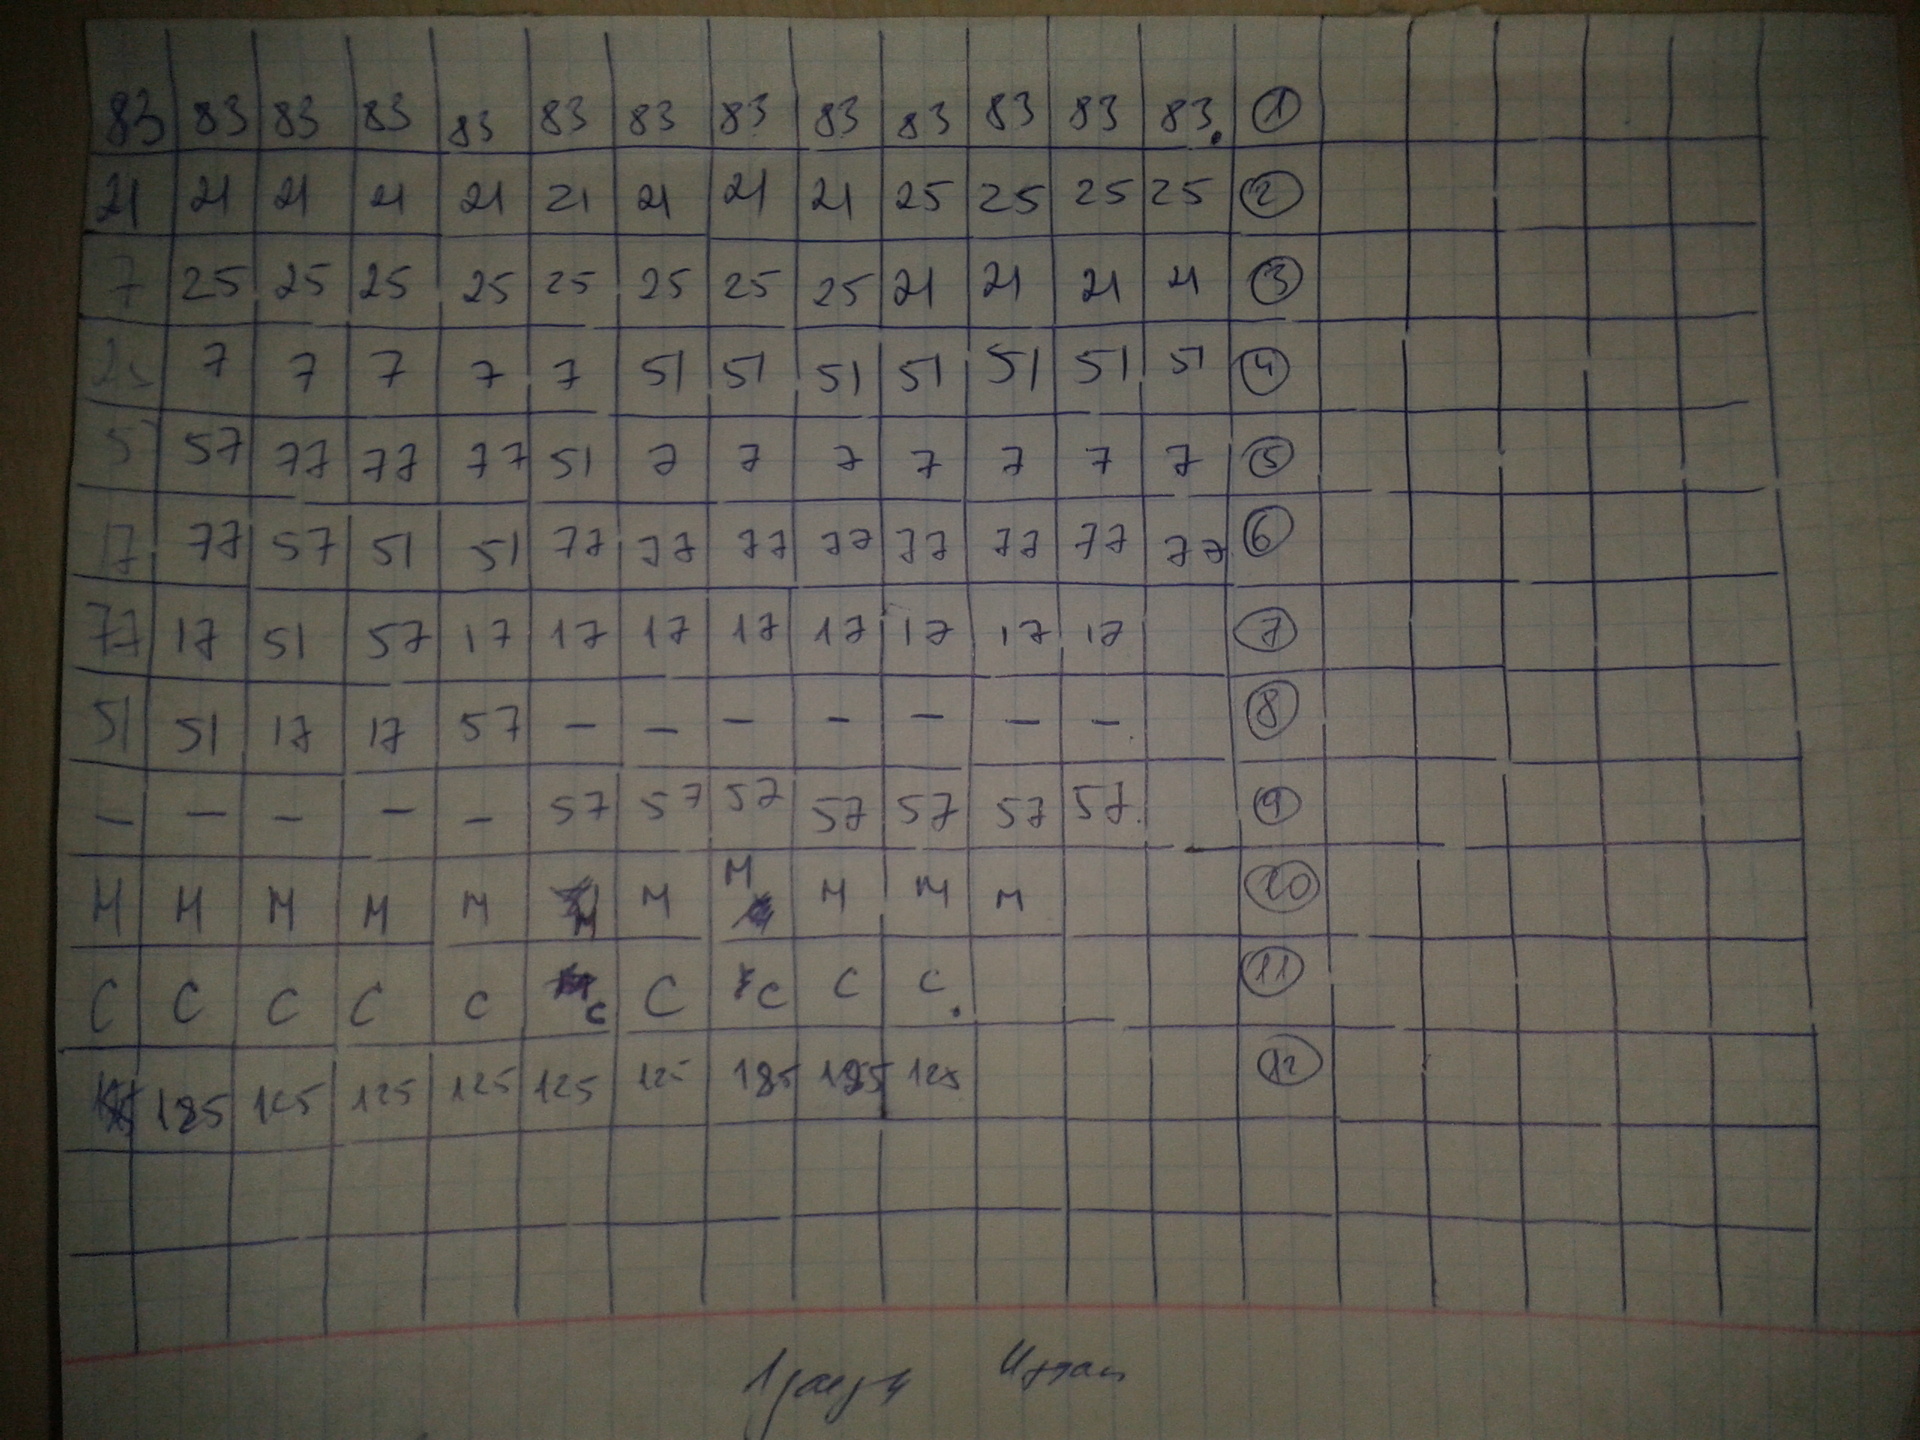 83 83 83 83 83 83 83 83 83 83 83 83 83. 1
21 21 21 21 21 21 21 21 21 25 25 25 25 2
7 25 25 25 25 25 25 25 25 21 21 21 21 3
25 7 7 7 7 7 51 51 51 51 51 51 51 4
57 57 77 77 77 51 7 7 7 7 7 7 7 5
17 77 57 51 51 77 77 77 77 77 77 77 77 6
77 17 51 57 17 17 17 17 17 17 17 17 7
51 51 17 17 57 – – – – – – – 8
– – – – – 57 57 57 57 57 57 57. 9
М М М М М М М М М М М 10
С С С С С С С С С С. 11
125 125 125 125 125 125 125 125 125 12
1 заезд